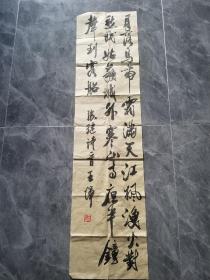 月落烏啼霜滿天江楓漁火對
愁眠姑蘇城外寒山寺夜半鐘
聲到客船 張繼詩 王